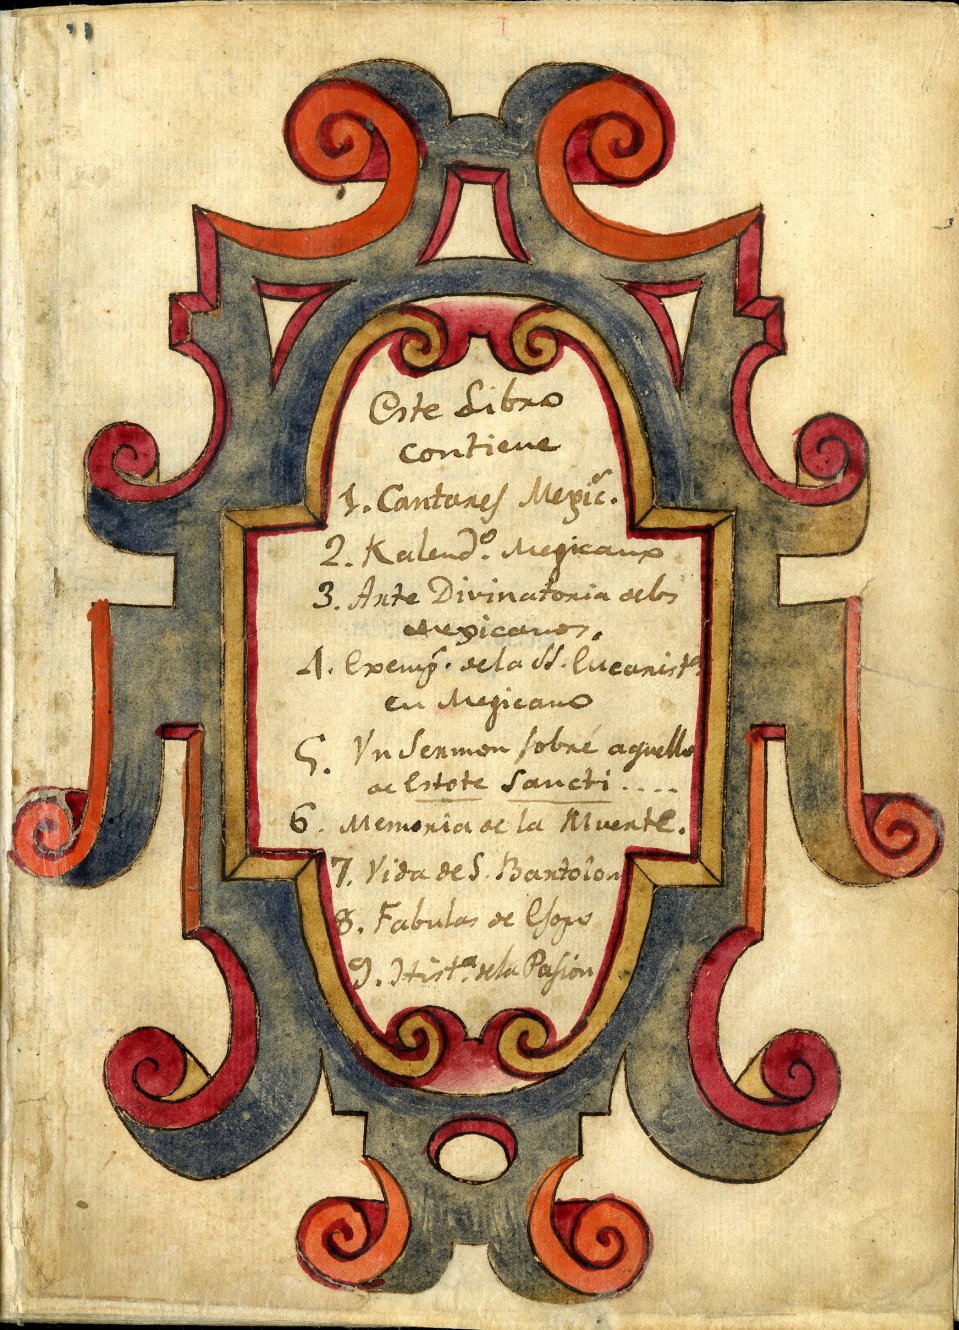 Este Libro
contiene
1. Cantares Mexic.ˢ
2. Kalend.º Mexicano
3. Arte Divinatoria delos
Mexicanos.
4. Exemp.ˢ de la SS. Eucarist.ª
en Mexicano
5. Vn Sermon sobre aquello
de Estote Sancti ....
6. Memoria de la Muerte.
7. Vida de S. Bartolon
8. Fabulas de Esopo
9. Hist.ª dela Pasion